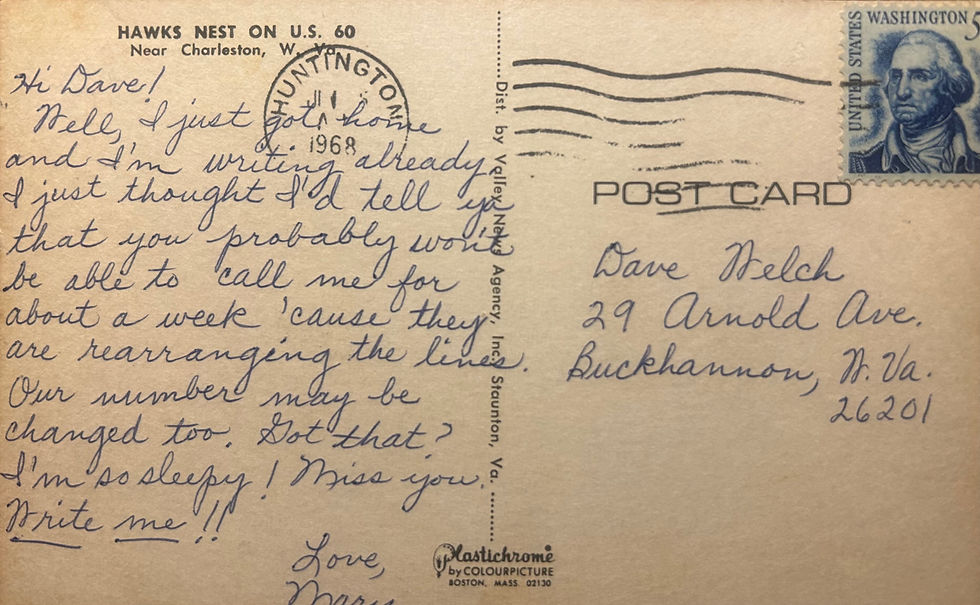 HAWKS NEST ON U.S. 60
Near Charleston, W. Va.
Hi Dave!
Well, I just got home
and I'm writing already.
I just thought I'd tell ya
that you probably won't
be able to call me for
about a week 'cause they
are rearranging the lines.
Our number may be
changed too. Got that?
I'm so sleepy! Miss you.
Write me!!
Love,
Mary
HUNTINGTON
1968
Dist. by Valley News Agency, Inc., Staunton, Va.
Plastichrome
by COLOURPICTURE
BOSTON, MASS. 02130
UNITED STATES
WASHINGTON 5
POST CARD
Dave Welch
29 Arnold Ave.
Buckhannon, W. Va.
26201